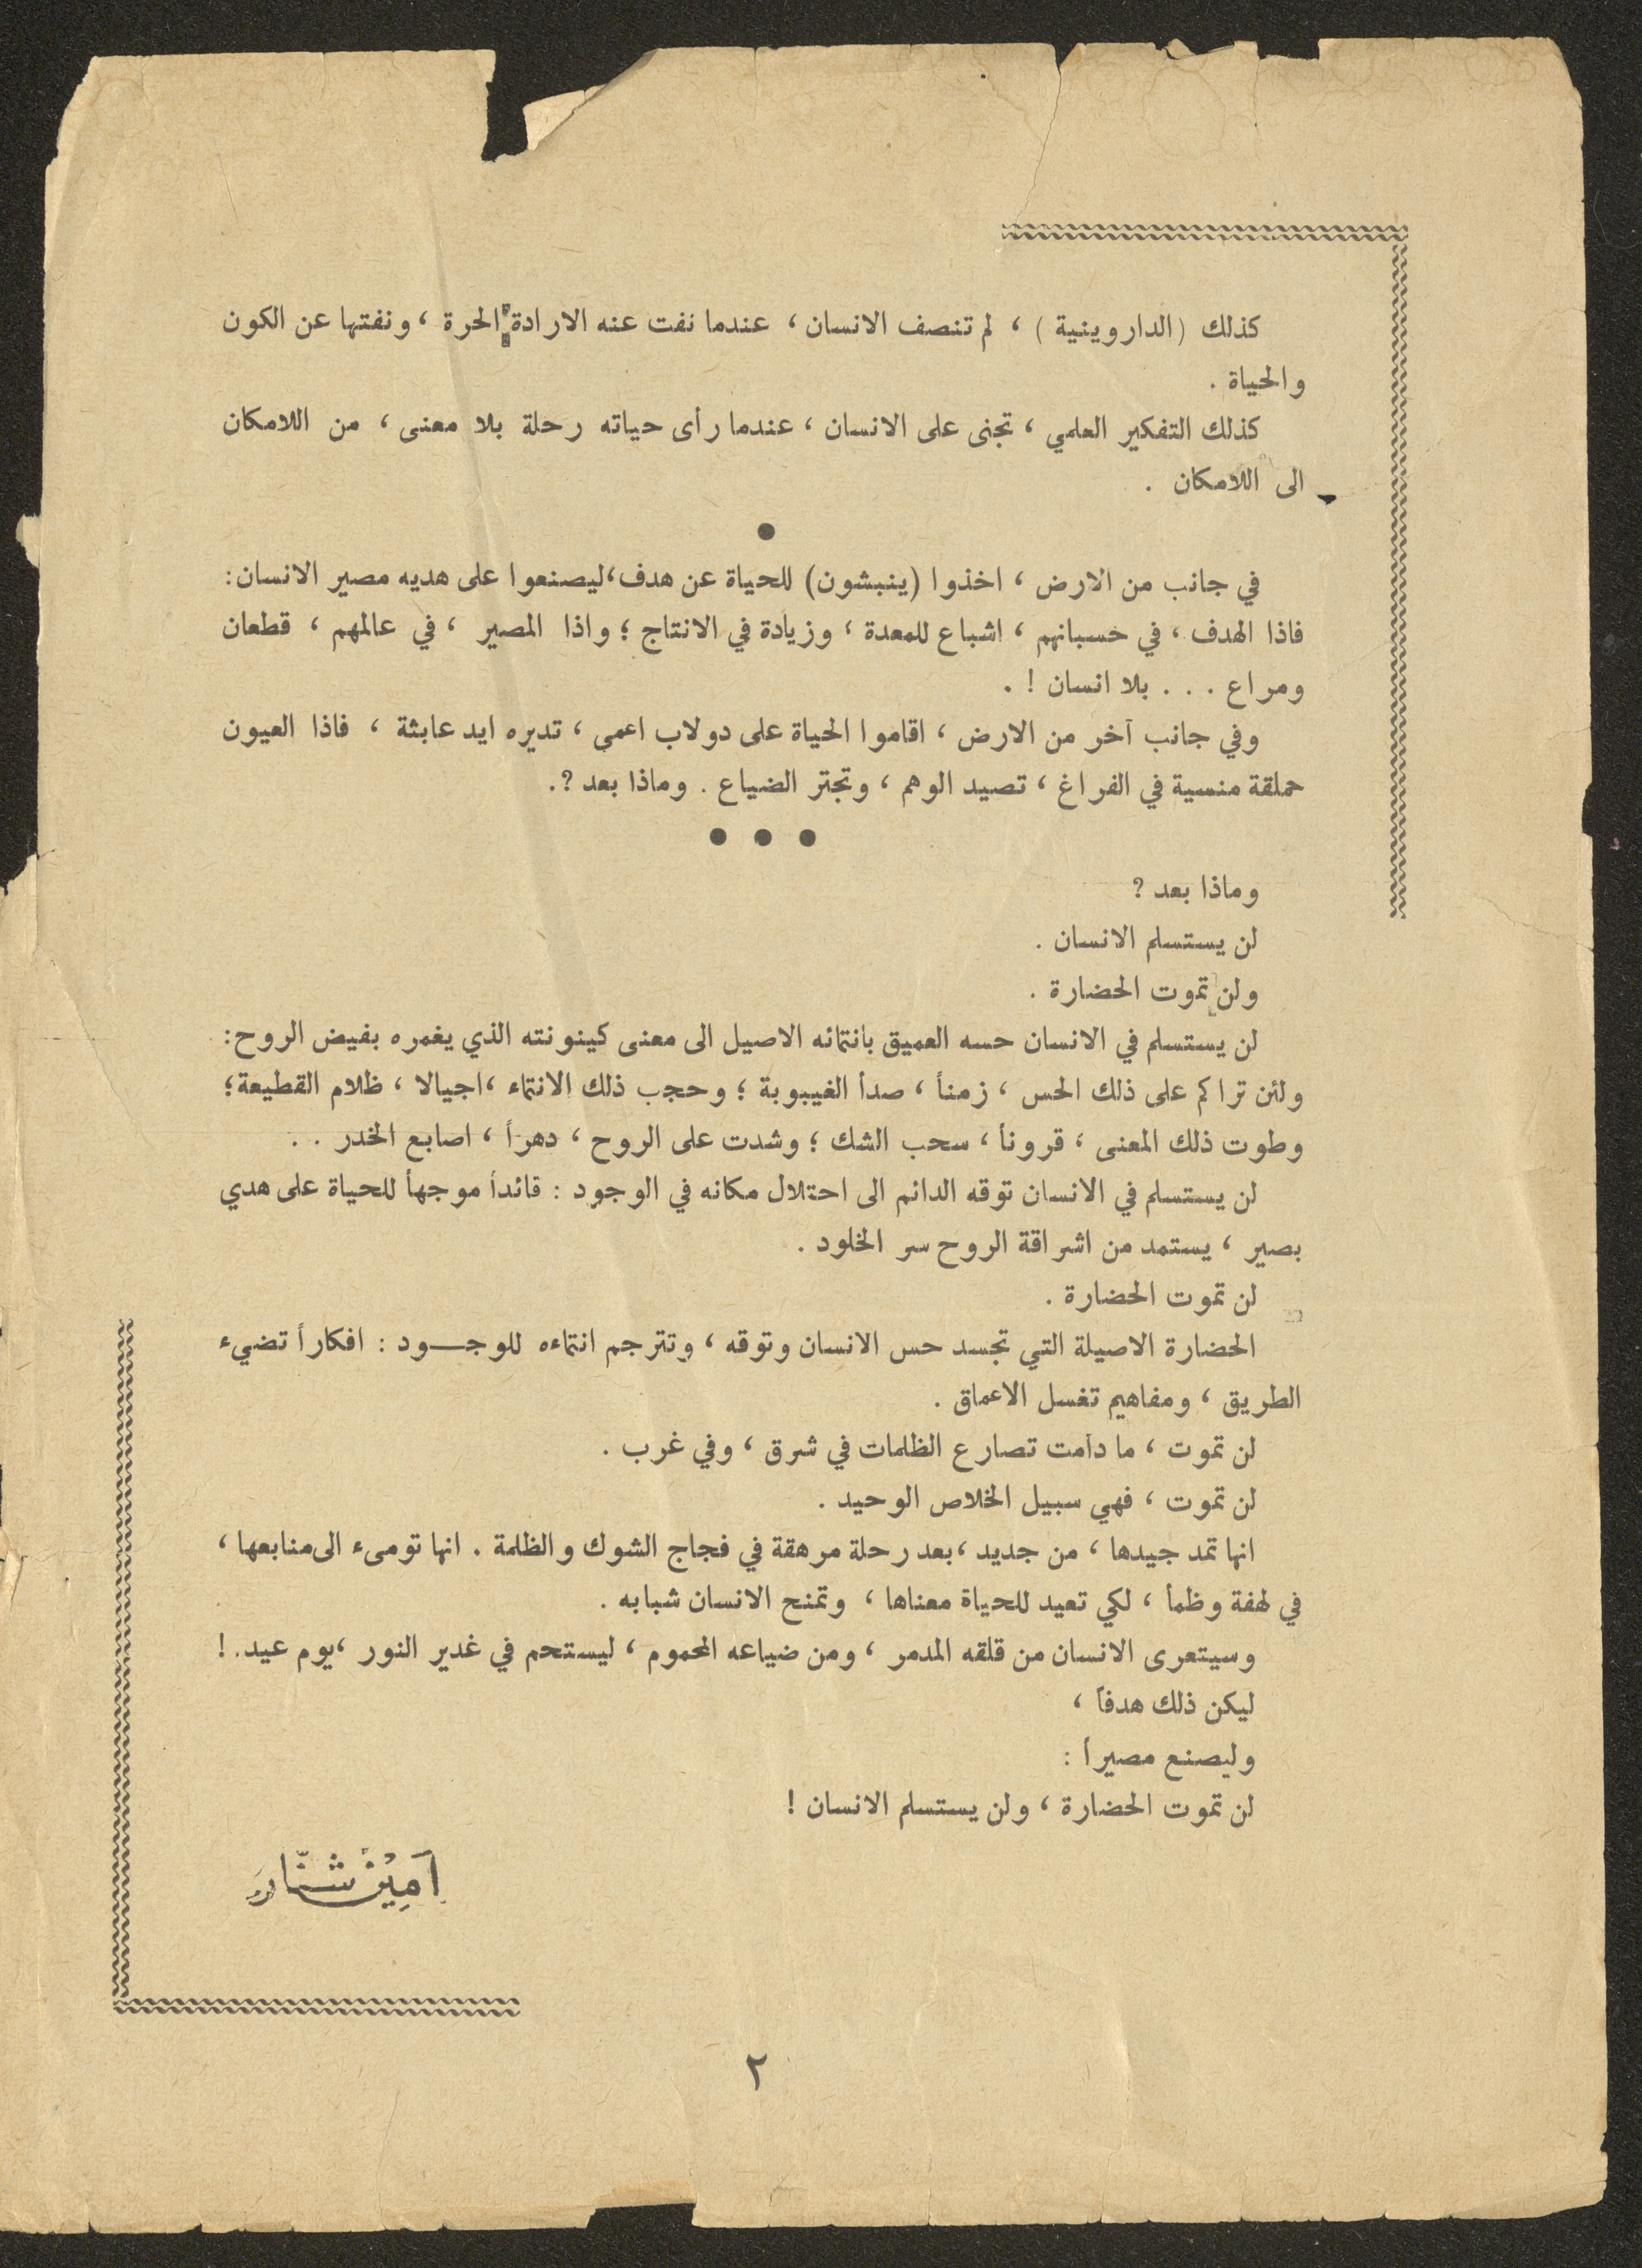 كذلك (الداروينية) ، لم تنصف الانسان ، عندما نفت عنه الارادة الحرة ، ونفتها عن الكون
والحياة .
كذلك التفكير العلمي ، تجنى على الانسان ، عندما رأى حياته رحلة بلا معنى ، من اللامكان
الى اللامكان .
●
في جانب من الارض ، اخذوا (ينبشون) للحياة عن هدف،ليصنعوا على هديه مصير الانسان:
فاذا الهدف ، في حسبانهم ، اشباع للمعدة ، وزيادة في الانتاج ؛ واذا المصير ، في عالمهم ، قطعان
ومراع . . . بلا انسان ! .
وفي جانب آخر من الارض ، اقاموا الحياة على دولاب اعمى ، تديره ايد عابثة ، فاذا العيون
حملقة منسية في الفراغ ، تصيد الوهم ، وتجتر الضياع . وماذا بعد ?.
● ● ●
وماذا بعد ?
لن يستسلم الانسان .
ولن تموت الحضارة .
لن يستسلم في الانسان حسه العميق بانتمائه الاصيل الى معنى كينونته الذي يغمره بفيض الروح:
ولئن تراكم على ذلك الحس ، زمناً ، صدأ الغيبوبة ؛ وحجب ذلك الانتماء ،اجيالا ، ظلام القطيعة؛
وطوت ذلك المعنى ، قروناً ، سحب الشك ؛ وشدت على الروح ، دهراً ، اصابع الخدر . .
لن يستسلم في الانسان توقه الدائم الى احتلال مكانه في الوجود : قائداً موجهاً للحياة على هدي
بصير ، يستمد من اشراقة الروح سر الخلود .
لن تموت الحضارة .
الحضارة الاصيلة التي تجسد حس الانسان وتوقه ، وتترجم انتماءه للوجــود : افكاراً تضيء
الطريق ، ومفاهيم تغسل الاعماق .
لن تموت ، ما دامت تصارع الظلمات في شرق ، وفي غرب .
لن تموت ، فهي سبيل الخلاص الوحيد .
انها تمد جيدها ، من جديد ،بعد رحلة مرهقة في فجاج الشوك والظلمة . انها تومىء الى منابعها ،
في لهفة وظمأ ، لكي تعيد للحياة معناها ، وتمنح الانسان شبابه .
وسيتعرى الانسان من قلقه المدمر ، ومن ضياعه المحموم ، ليستحم في غدير النور ،يوم عيد. !
ليكن ذلك هدفاً ،
وليصنع مصيراً :
لن تموت الحضارة ، ولن يستسلم الانسان !
اَمِيْن شنّار
٢